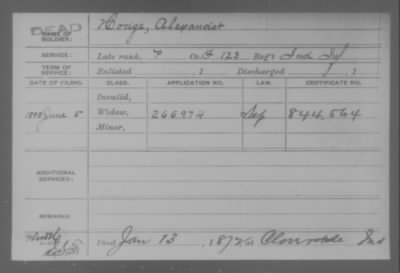 DEAD
NAME OF SOLDIER: Hodge, Alexander
SERVICE: Late rank, P Co. G 123 Reg't Ind Inf
TERM OF SERVICE: Enlisted , 1 Discharged , 1
DATE OF FILING. CLASS. APPLICATION NO. LAW. CERTIFICATE NO.
Invalid,
1880 June 5 Widow, 266974 844,564
Minor,
ADDITIONAL SERVICES:
REMARKS.
Died Jan 13, 1872 at Ind